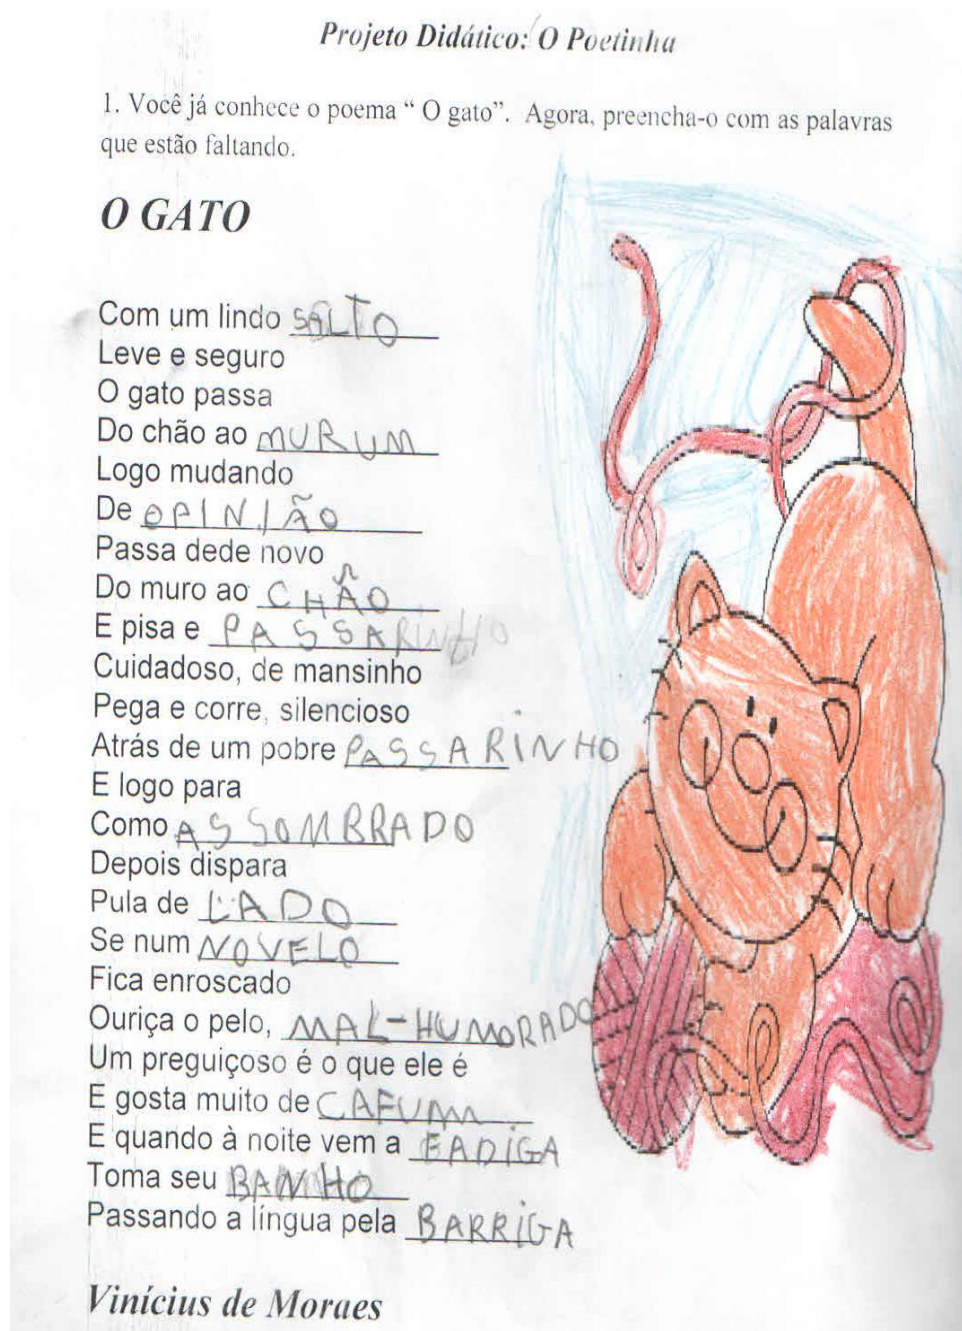 Projeto Didático: O Poetinha
1. Você já conhece o poema “ O gato”. Agora, preencha-o com as palavras
que estão faltando.
O GATO
Com um lindo SALTO
Leve e seguro
O gato passa
Do chão ao MURUM
Logo mudando
De OPINIÃO
Passa dede novo
Do muro ao CHÃO
E pisa e PASSARINHO
Cuidadoso, de mansinho
Pega e corre, silencioso
Atrás de um pobre PASSARINHO
E logo para
Como ASSOMBRADO
Depois dispara
Pula de LADO
Se num NOVELO
Fica enroscado
Ouriça o pelo, MAL-HUMORADO
Um preguiçoso é o que ele é
E gosta muito de CAFUM
E quando à noite vem a FADIGA
Toma seu BANHO
Passando a língua pela BARRIGA
Vinícius de Moraes